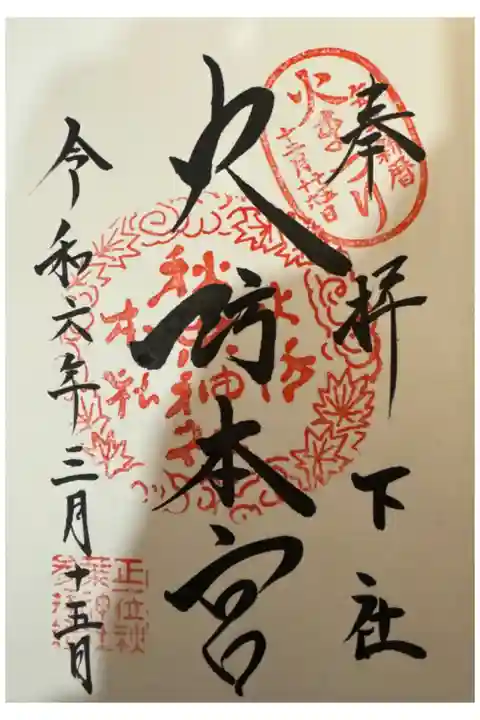 奉拝 下社
火防本宮
令和六年三月十五日
火まつり
十二月
正一位秋
葉神社
秋葉神社
本社
火防